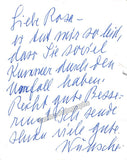 Liebe Rosa –
es tut mir so leid,
dass Sie soviel
Kummer durch den
Unfall haben.
Recht gute Besse-
rung! Ich sende
Ihnen viele gute
Wünsche